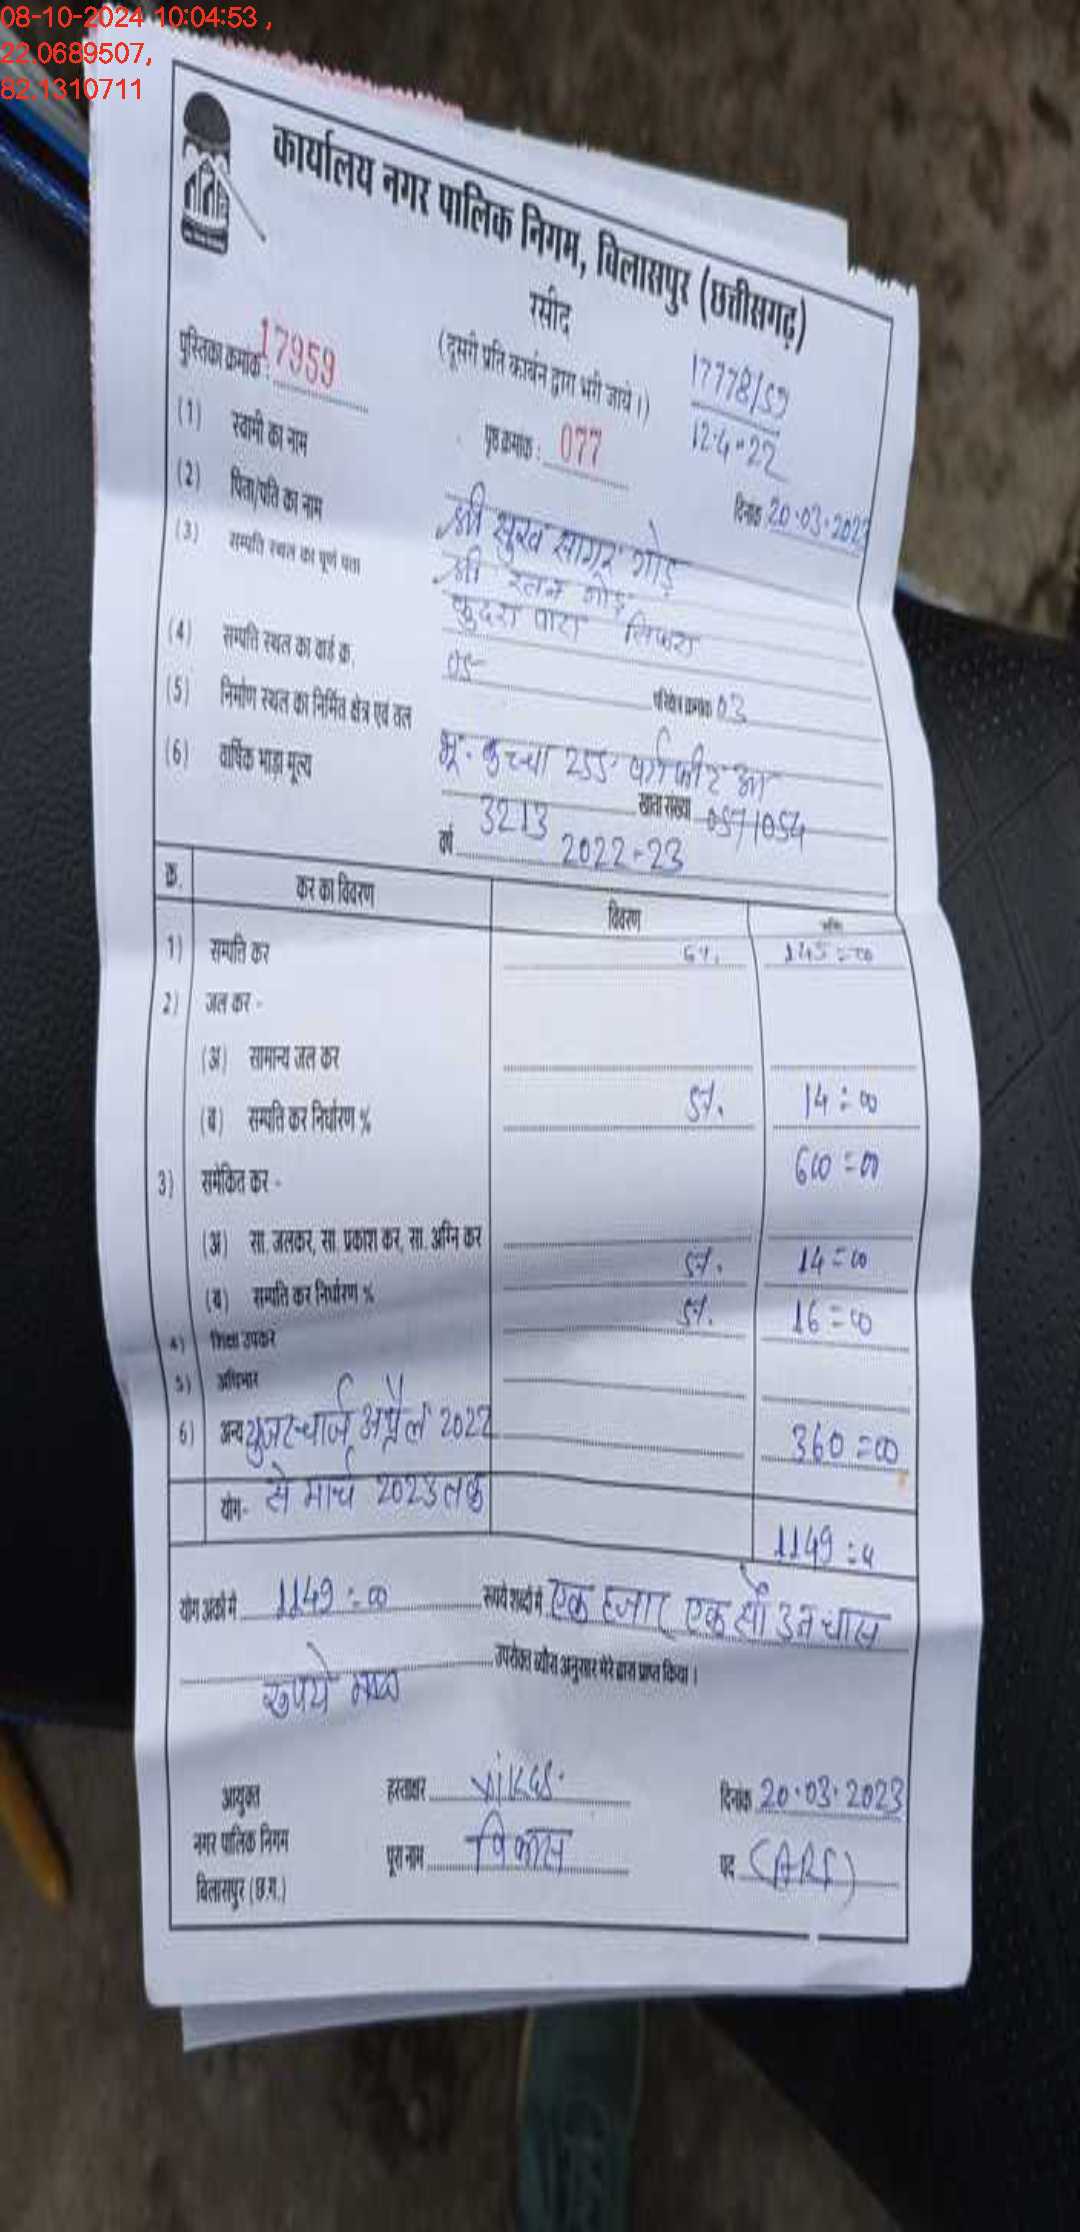 08-10-2024 10:04:53 ,
22.0689507,
82.1310711
कार्यालय नगर पालिक निगम, बिलासपुर (छत्तीसगढ़)
रसीद
(दूसरी प्रति कार्बन द्वारा भरी जाये।)
17778/59
12.4.22
पुस्तिका क्रमांक : 17959
पृष्ठ क्रमांक : 077
दिनांक 20.03.2023
(1) स्वामी का नाम श्री सुख सागर गोड़
(2) पिता/पति का नाम श्री रतन गोड़
(3) सम्पति स्थल का पूर्ण पता कुदरा पारा तिफरा
(4) सम्पति स्थल का वार्ड क्र. 05 परिक्षेत्र क्रमांक 03
(5) निर्माण स्थल का निर्मित क्षेत्र एवं तल भू. कच्चा 255 वर्ग फीट
(6) वार्षिक भाड़ा मूल्य 3213 खाता संख्या 057/054
वर्ष 2022-23
क्र. कर का विवरण विवरण राशि
1) सम्पत्ति कर 6%. 145=00
2) जल कर -
(अ) सामान्य जल कर
(ब) सम्पति कर निर्धारण % 5%. 14=00
3) समेकित कर - 600=00
(अ) सा. जलकर, सा. प्रकाश कर, सा. अग्नि कर
(ब) सम्पति कर निर्धारण % 5%. 14=00
4) शिक्षा उपकर 5%. 16=00
5) अधिभार
6) अन्य युजरचार्ज अप्रैल 2022 360=00
से मार्च 2023 तक
योग- 1149=00
योग अंकों में 1149=00 रूपये शब्दों में एक हजार एक सौ उनचास
रूपये मात्र उपरोक्त ब्यौरा अनुसार मेरे द्वारा प्राप्त किया।
आयुक्त हस्ताक्षर Vikas. दिनांक 20.03.2023
नगर पालिक निगम पूरा नाम विकास पद (ARI)
बिलासपुर (छ.ग.)